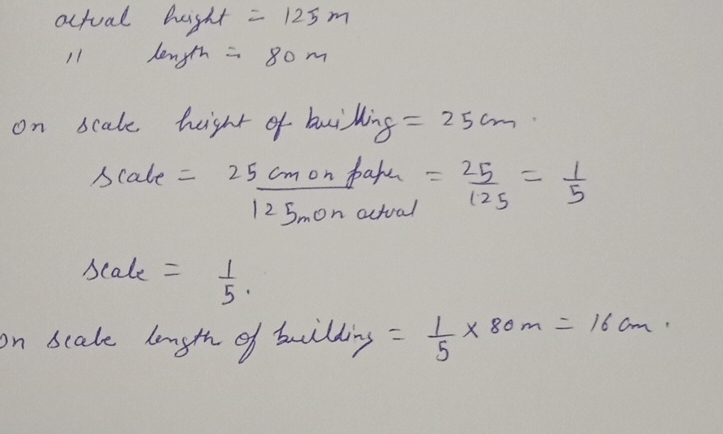 actual height = 125 m
" length = 80 m
on scale height of building = 25 cm.
scale = 25 cm on paper / 125 m on actual = 25/125 = 1/5
scale = 1/5.
on scale length of building = 1/5 × 80 m = 16 cm.